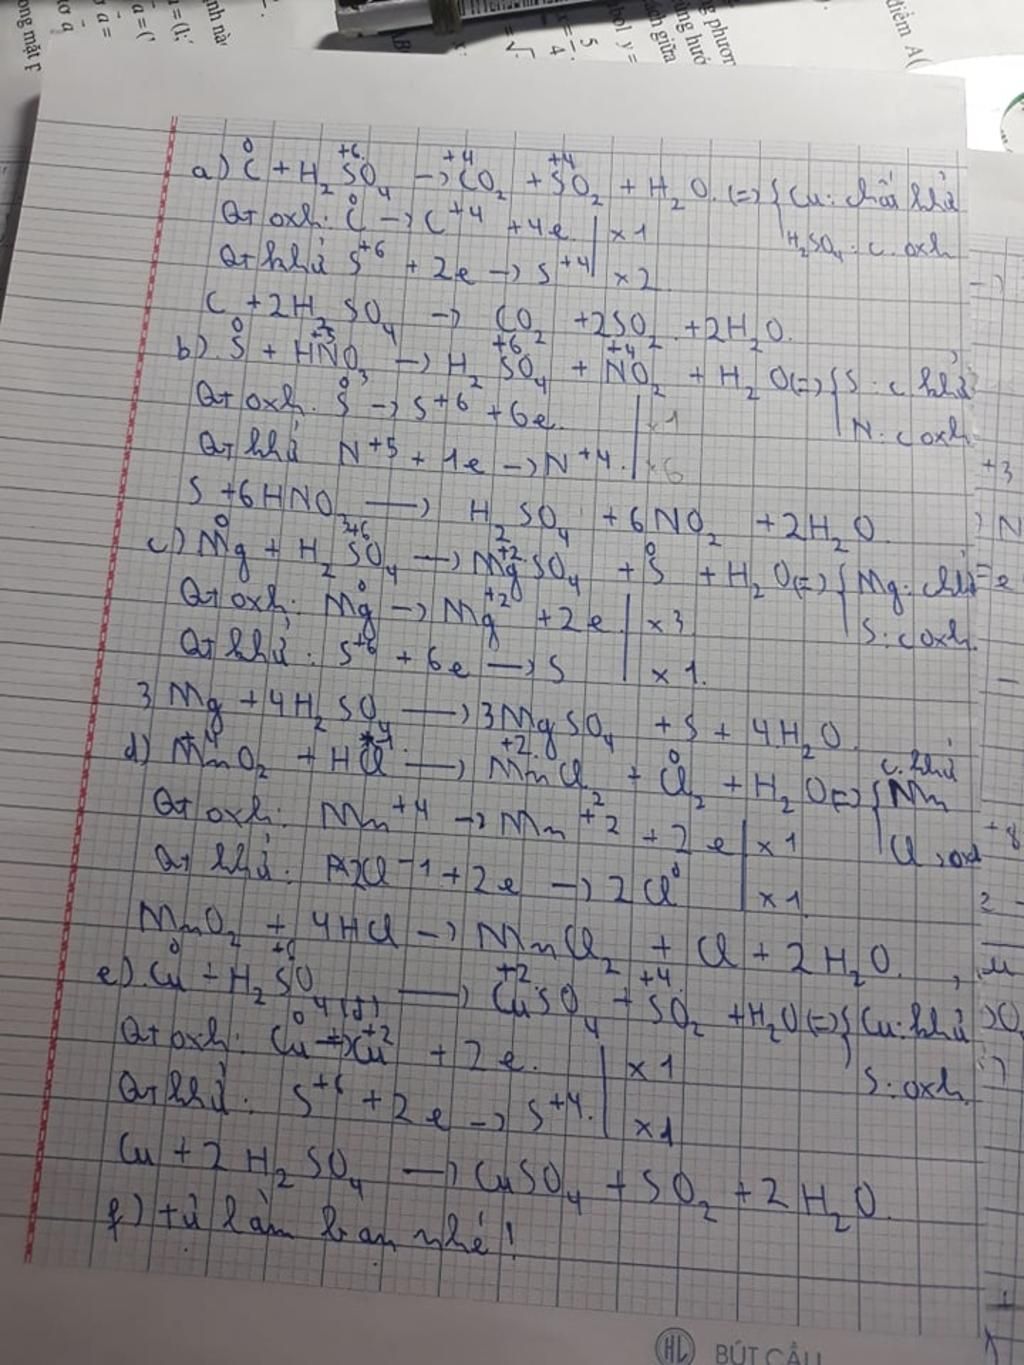 a) C⁰ + H₂S⁺⁶O₄ → C⁺⁴O₂ + S⁺⁴O₂ + H₂O. (=) { Cu: chất khử
H₂SO₄: c. oxh
QT oxh: C⁰ → C⁺⁴ + 4e | x 1
QT khử S⁺⁶ + 2e → S⁺⁴ | x 2
C + 2H₂SO₄ → CO₂ + 2SO₂ + 2H₂O.
b) S⁰ + HN⁺⁵O₃ → H₂S⁺⁶O₄ + N⁺⁴O₂ + H₂O (=) { S: c khử
N: c oxh
QT oxh: S⁰ → S⁺⁶ + 6e. | x 1
QT khử N⁺⁵ + 1e → N⁺⁴. | x 6
S + 6HNO₃ → H₂SO₄ + 6NO₂ + 2H₂O.
c) Mg⁰ + H₂S⁺⁶O₄ → Mg⁺²SO₄ + S⁰ + H₂O (=) { Mg: khử
S: c oxh.
QT oxh: Mg⁰ → Mg⁺² + 2e | x 3
QT khử: S⁺⁶ + 6e → S | x 1.
3Mg + 4H₂SO₄ → 3MgSO₄ + S + 4H₂O.
d) Mn⁺⁴O₂ + HCl⁻¹ → Mn⁺²Cl₂ + Cl⁰₂ + H₂O (=) { Mn c. khử
Cl: oxh
QT oxh: Mn⁺⁴ → Mn⁺² + 2e | x 1
QT khử: 2Cl⁻¹ + 2e → 2Cl⁰ | x 1
MnO₂ + 4HCl → MnCl₂ + Cl + 2H₂O.
e) Cu⁰ + H₂S⁺⁶O₄ (đ) → Cu⁺²SO₄ + S⁺⁴O₂ + H₂O (=) { Cu: khử
S: oxh.
QT oxh: Cu⁰ → Cu⁺² + 2e. | x 1
QT khử: S⁺⁶ + 2e → S⁺⁴. | x 1
Cu + 2H₂SO₄ → CuSO₄ + SO₂ + 2H₂O.
f) tự làm bạn nhé!
HL BÚT CẦU